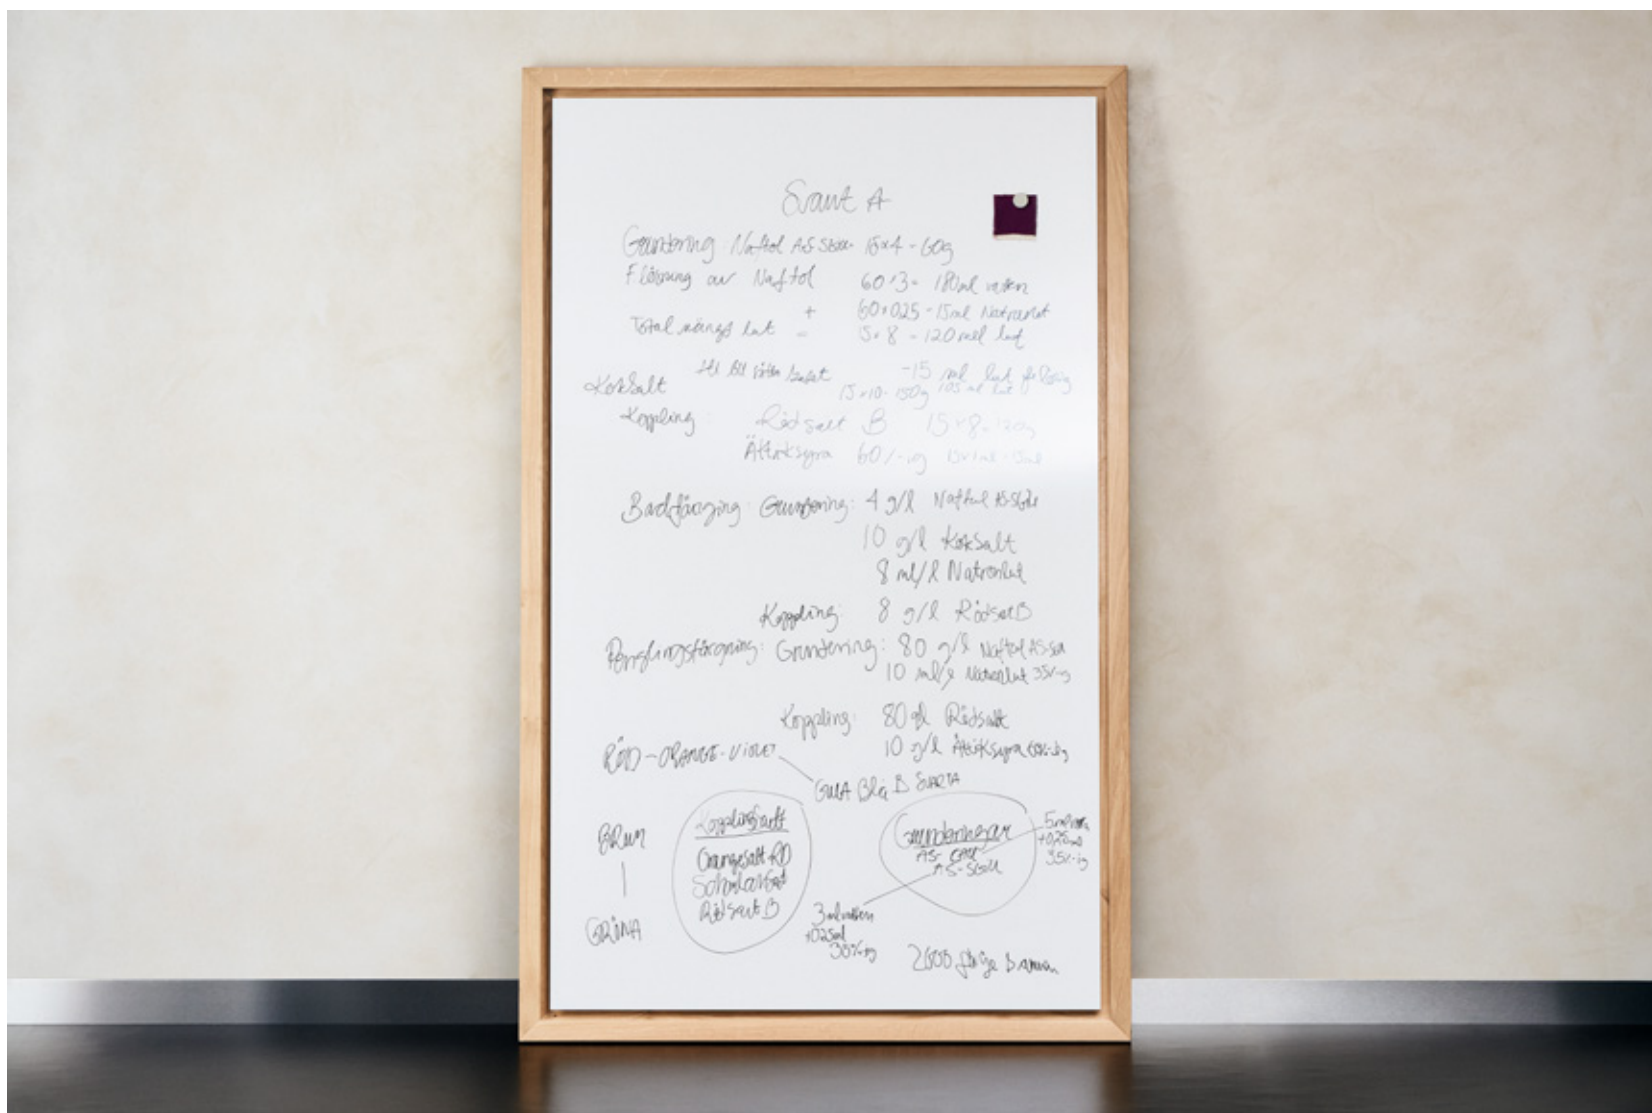 Svart A
Grundering Naftol AS 15×4 = 60g
Naftol 60·3 = 180ml vatten
+ 60×0,25 = 15ml Natronlut
Total mängd lut = 15×8 = 120 ml lut
-15 ml lut
Koksalt 15×10 = 150g 105 ml lut
Koppling: Rödsalt B 15×8 = 120g
Ättiksyra 60%-ig 15×1ml = 15ml
Badfärgning: Grundering: 4 g/l Naftol
10 g/l Koksalt
8 ml/l Natronlut
Koppling: 8 g/l Rödsalt B
Penslingsfärgning: Grundering: 80 g/l Naftol
10 ml/l Natronlut 35%-ig
Koppling: 80 g/l Rödsalt
10 g/l Ättiksyra
RÖD - ORANGE - VIOLET
GULA Blå B SVARTA
Kopplingsalt
BRUN
Orangesalt RD
Rödsalt B
GRÖNA
Grunderingar
AS-
AS-
5ml vatten
+0,25ml
35%-ig
3ml vatten
+0,25ml
35%-ig